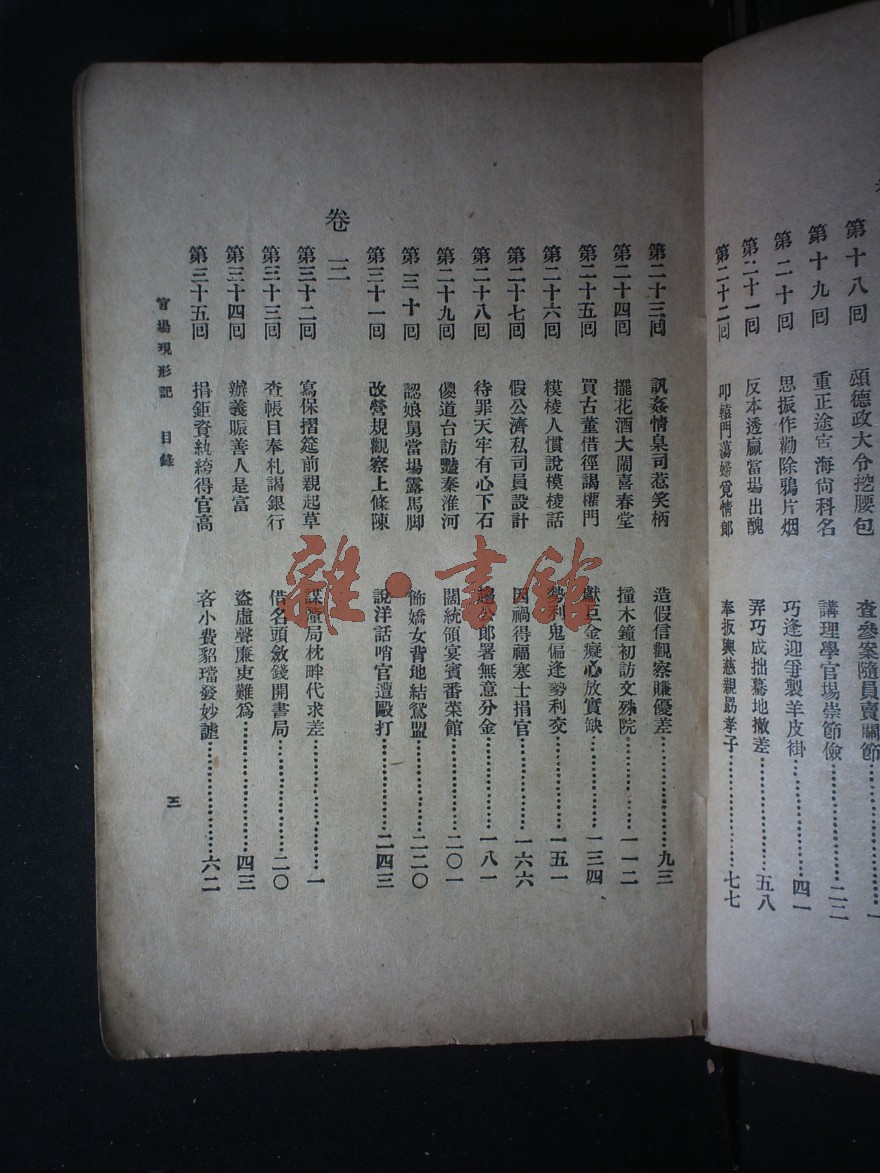 第十八回 頌德政大令挖腰包 查參案隨員賣關節……一
第十九回 重正途宦海尙科名 講理學官場崇節儉……二二
第二十回 思振作勸除鴉片烟 巧逢迎爭製羊皮褂……四一
第二十一回 反本透贏當場出醜 弄巧成拙驀地撤差……五八
第二十二回 叩轅門蕩婦覓情郞 奉板輿慈親勗孝子……七七
第二十三回 訊姦情臬司惹笑柄 造假信觀察賺優差……九三
第二十四回 擺花酒大鬧喜春堂 撞木鐘初訪文殊院……一一二
第二十五回 買古董借徑謁權門 獻巨金癡心放實缺……一三四
第二十六回 模棱人慣說模棱話 勢利鬼偏逢勢利交……一五一
第二十七回 假公濟私司員設計 因禍得福寒士捐官……一六六
第二十八回 待罪天牢有心下石 趨公郎署無意分金……一八一
第二十九回 傻道台訪豔秦淮河 闊統領宴賓番菜館……二〇一
第三十回 認娘舅當場露馬脚 飾嬌女背地結鴛盟……二二〇
第三十一回 改營規觀察上條陳 說洋話哨官遭毆打……二四三
卷三
第三十二回 寫保摺筵前親起草 謀釐局枕畔代求差……一
第三十三回 查帳目奉札謁銀行 借名頭斂錢開書局……二〇
第三十四回 辦義賑善人是富 盜虛聲廉吏難爲……四三
第三十五回 捐鉅資紈絝得官高 吝小費貂璫發妙謔……六二
官場現形記 目錄
三
雜·書館